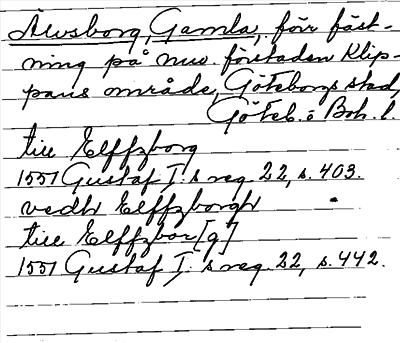 Älvsborg, Gamla, förr fäst-
ning på nuv. förstaden Klip-
pans område, Göteborgs stad,
Göteb. o. Boh. l.
till Elffzborg
1551 Gustaf I:s reg. 22, s. 403.
vedh Elffzborgh
till Elffzbor[g]
1551 Gustaf I:s reg. 22, s. 442.